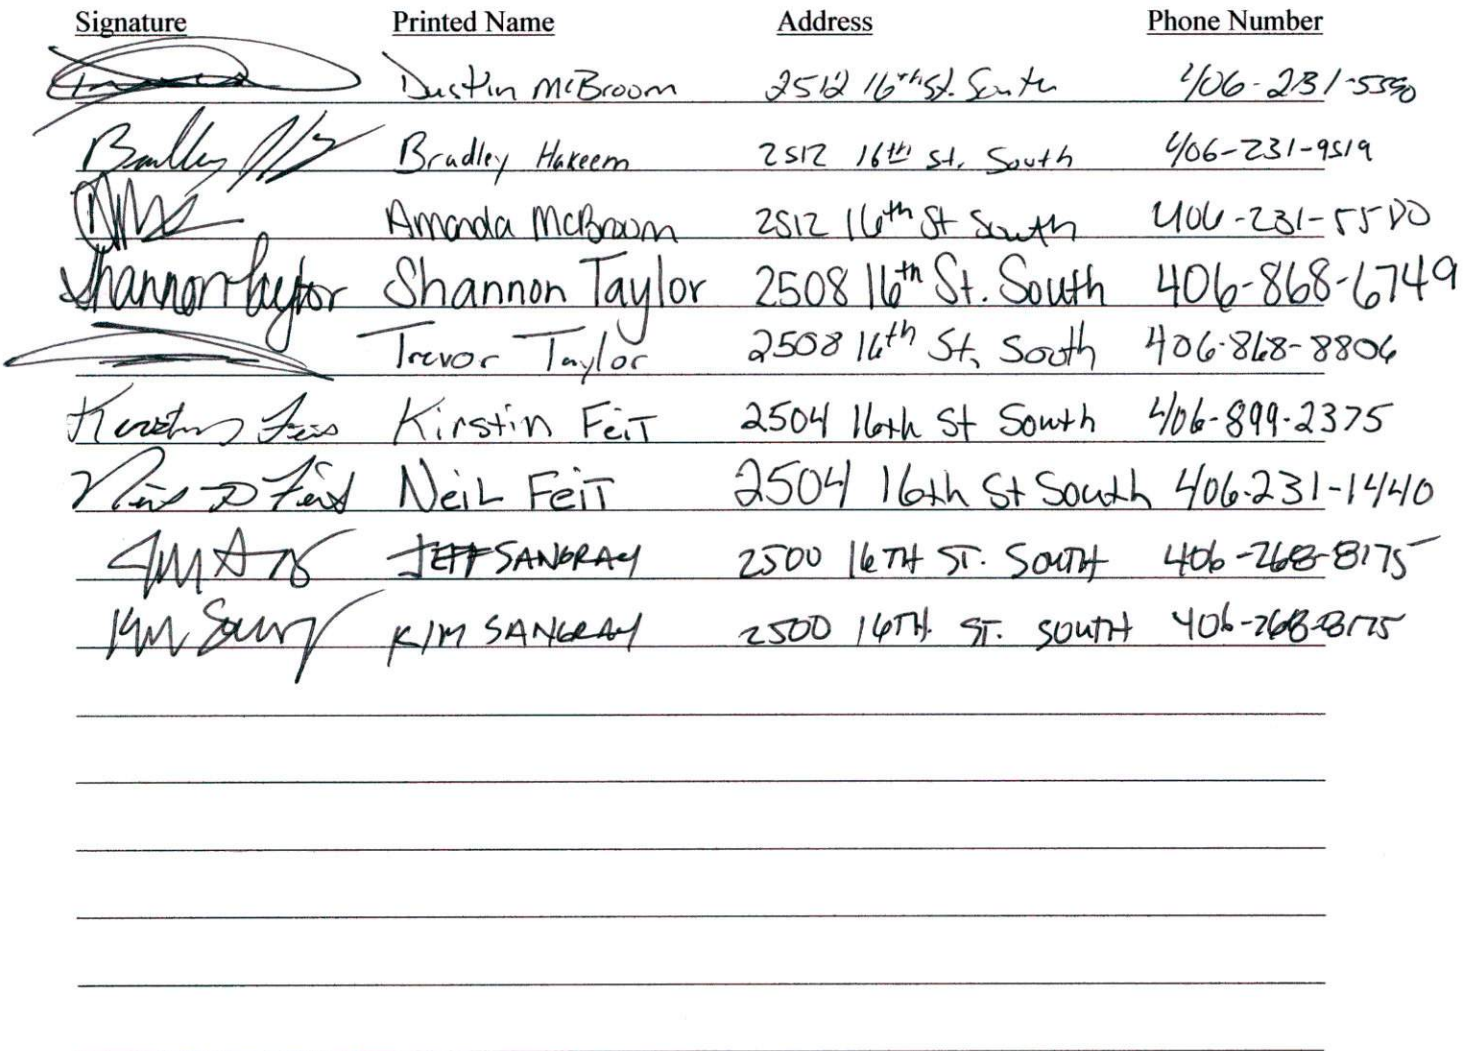 Signature Printed Name Address Phone Number
Dustin McBroom 2512 16th St. South 406-231-5590
Bradley Hakeem 2512 16th St. South 406-231-9519
Amanda McBroom 2512 16th St South 406-231-55
Shannon Taylor Shannon Taylor 2508 16th St. South 406-868-6749
Trevor Taylor 2508 16th St. South 406-868-8806
Kirstin Feit 2504 16th St South 406-899-2375
Neil Feit 2504 16th St South 406-231-1440
JEFF SANGRAY 2500 16TH ST. SOUTH 406-268-8175
KIM SANGRAY 2500 16TH. ST. SOUTH 406-268-8175